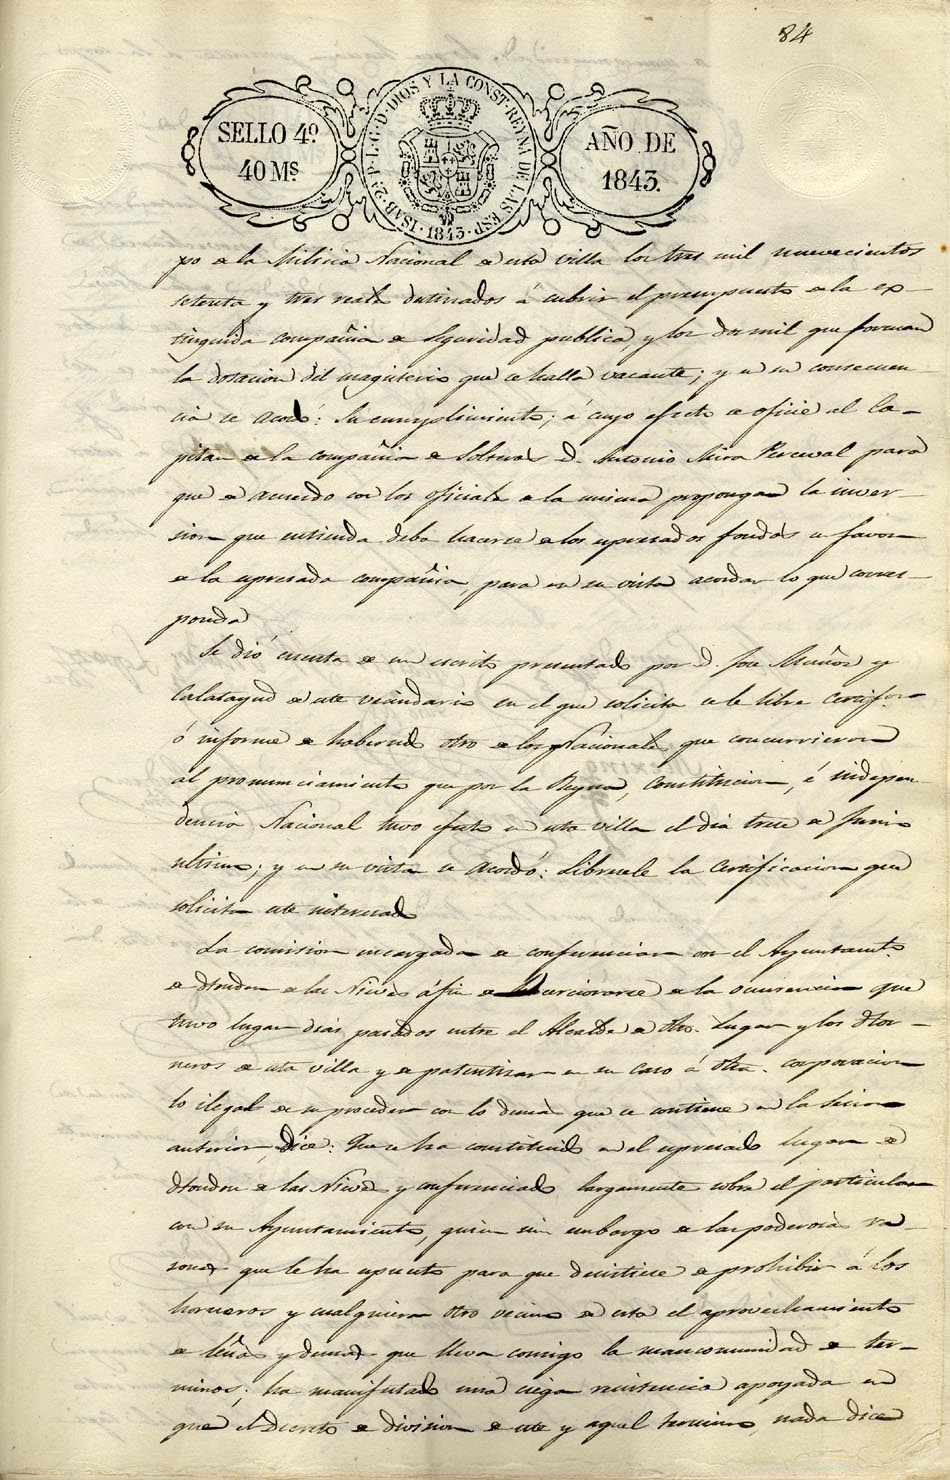 84
SELLO 4º
40 Ms
ISAB. 2ª P. L. G. D. DIOS Y LA CONST. REYNA DE LAS ESP. 1843
AÑO DE
1843.
po de la Milicia Nacional de esta villa los tres mil nuevecientos
setenta y tres reales destinados á cubrir el presupuesto de la ex-
tinguida compañia de Seguridad publica y los dos mil que forman
la dotacion del magisterio que se halla vacante; y en su consecuen-
cia se acordó: Su cumplimiento; á cuyo efecto se oficie al Ca-
pitan de la compañia de Solteros D. Antonio Mira Perceval para
que de acuerdo con los oficiales de la misma propongan la inver-
sion que entienda deba hacerse de los espresados fondos en favor
de la espresada compañia, para en su vista acordar lo que corres-
ponda
Se dió cuenta de un escrito presentado por D. José Muñoz y
Calatayud de este vecindario en el que solicita se le libre Certifon.
ó informe de haber sido otro de los Nacionales que concurrieron
al pronunciamiento que por la Reyna, Constitucion, é indepen-
dencia Nacional tuvo efecto en esta villa el dia trece de Junio
ultimo; y en su vista se acordó: Libresele la Certificacion que
solicita este interesado
La comision encargada de conferenciar con el Ayuntamto.
de Hondon de las Nieves á fin de cerciorarse de la ocurrencia que
tuvo lugar dias pasados entre el Alcalde de dho. Lugar y los Hor-
neros de esta villa y de patentizar en su caso á dha. corporacion
lo ilegal de su proceder con lo demas que se contiene en la sesion
anterior, dice: Que se ha constituido en el espresado lugar de
Hondon de las Nieves y conferenciado largamente sobre el particular
con su Ayuntamiento, quien sin embargo de las poderosas ra-
zones que le ha espuesto para que desistiese de prohibir á los
horneros y cualquiera otro vecino de esta el aprovechamiento
de leñas y demas que lleva consigo la mancomunidad de ter-
minos; ha manifestado una ciega resistencia apoyada en
que el Decreto de division de este y aquel termino, nada dice